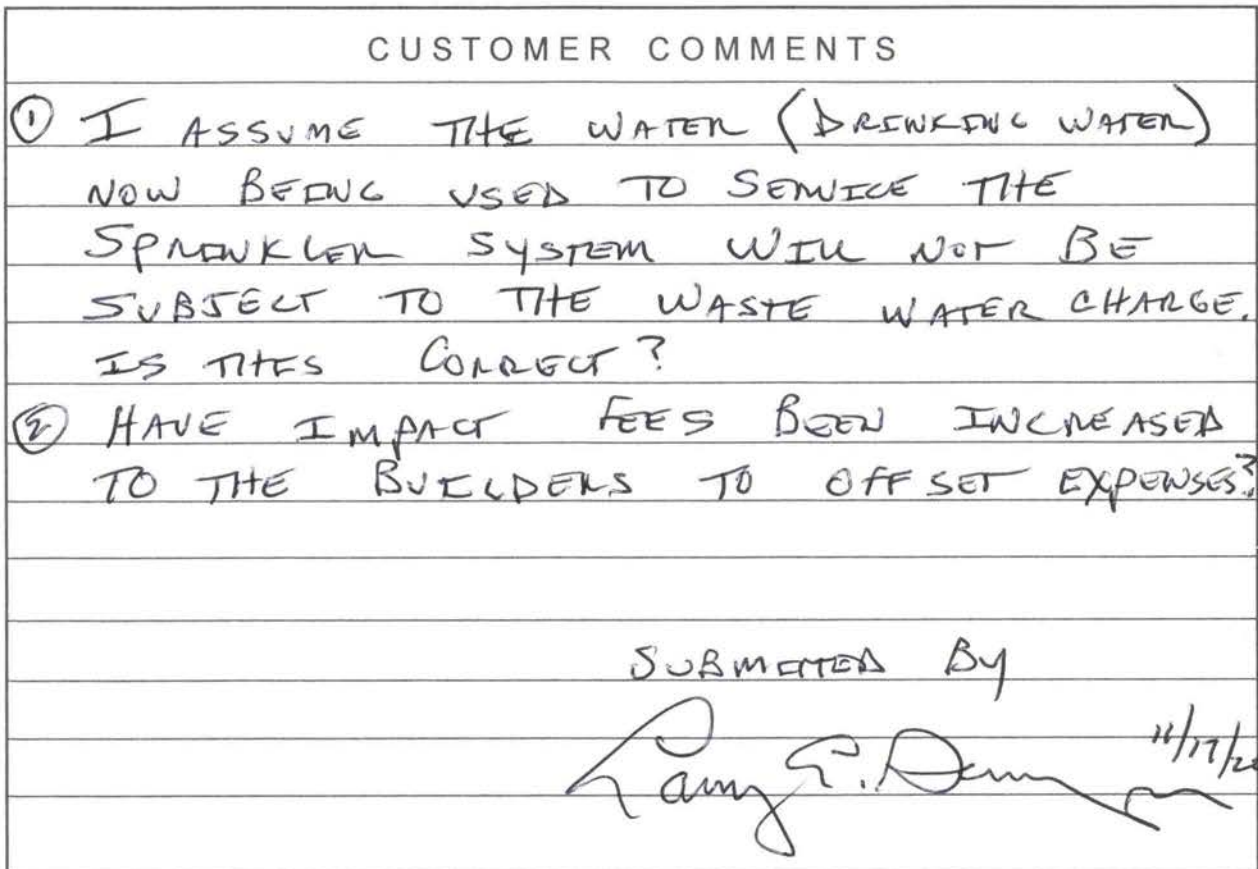 CUSTOMER COMMENTS
① I ASSUME THE WATER (DRINKING WATER)
NOW BEING USED TO SERVICE THE
SPRINKLER SYSTEM WILL NOT BE
SUBJECT TO THE WASTE WATER CHARGE.
IS THIS CORRECT?
② HAVE IMPACT FEES BEEN INCREASED
TO THE BUILDERS TO OFFSET EXPENSES?
SUBMITTED BY
Larry E.
11/17/2